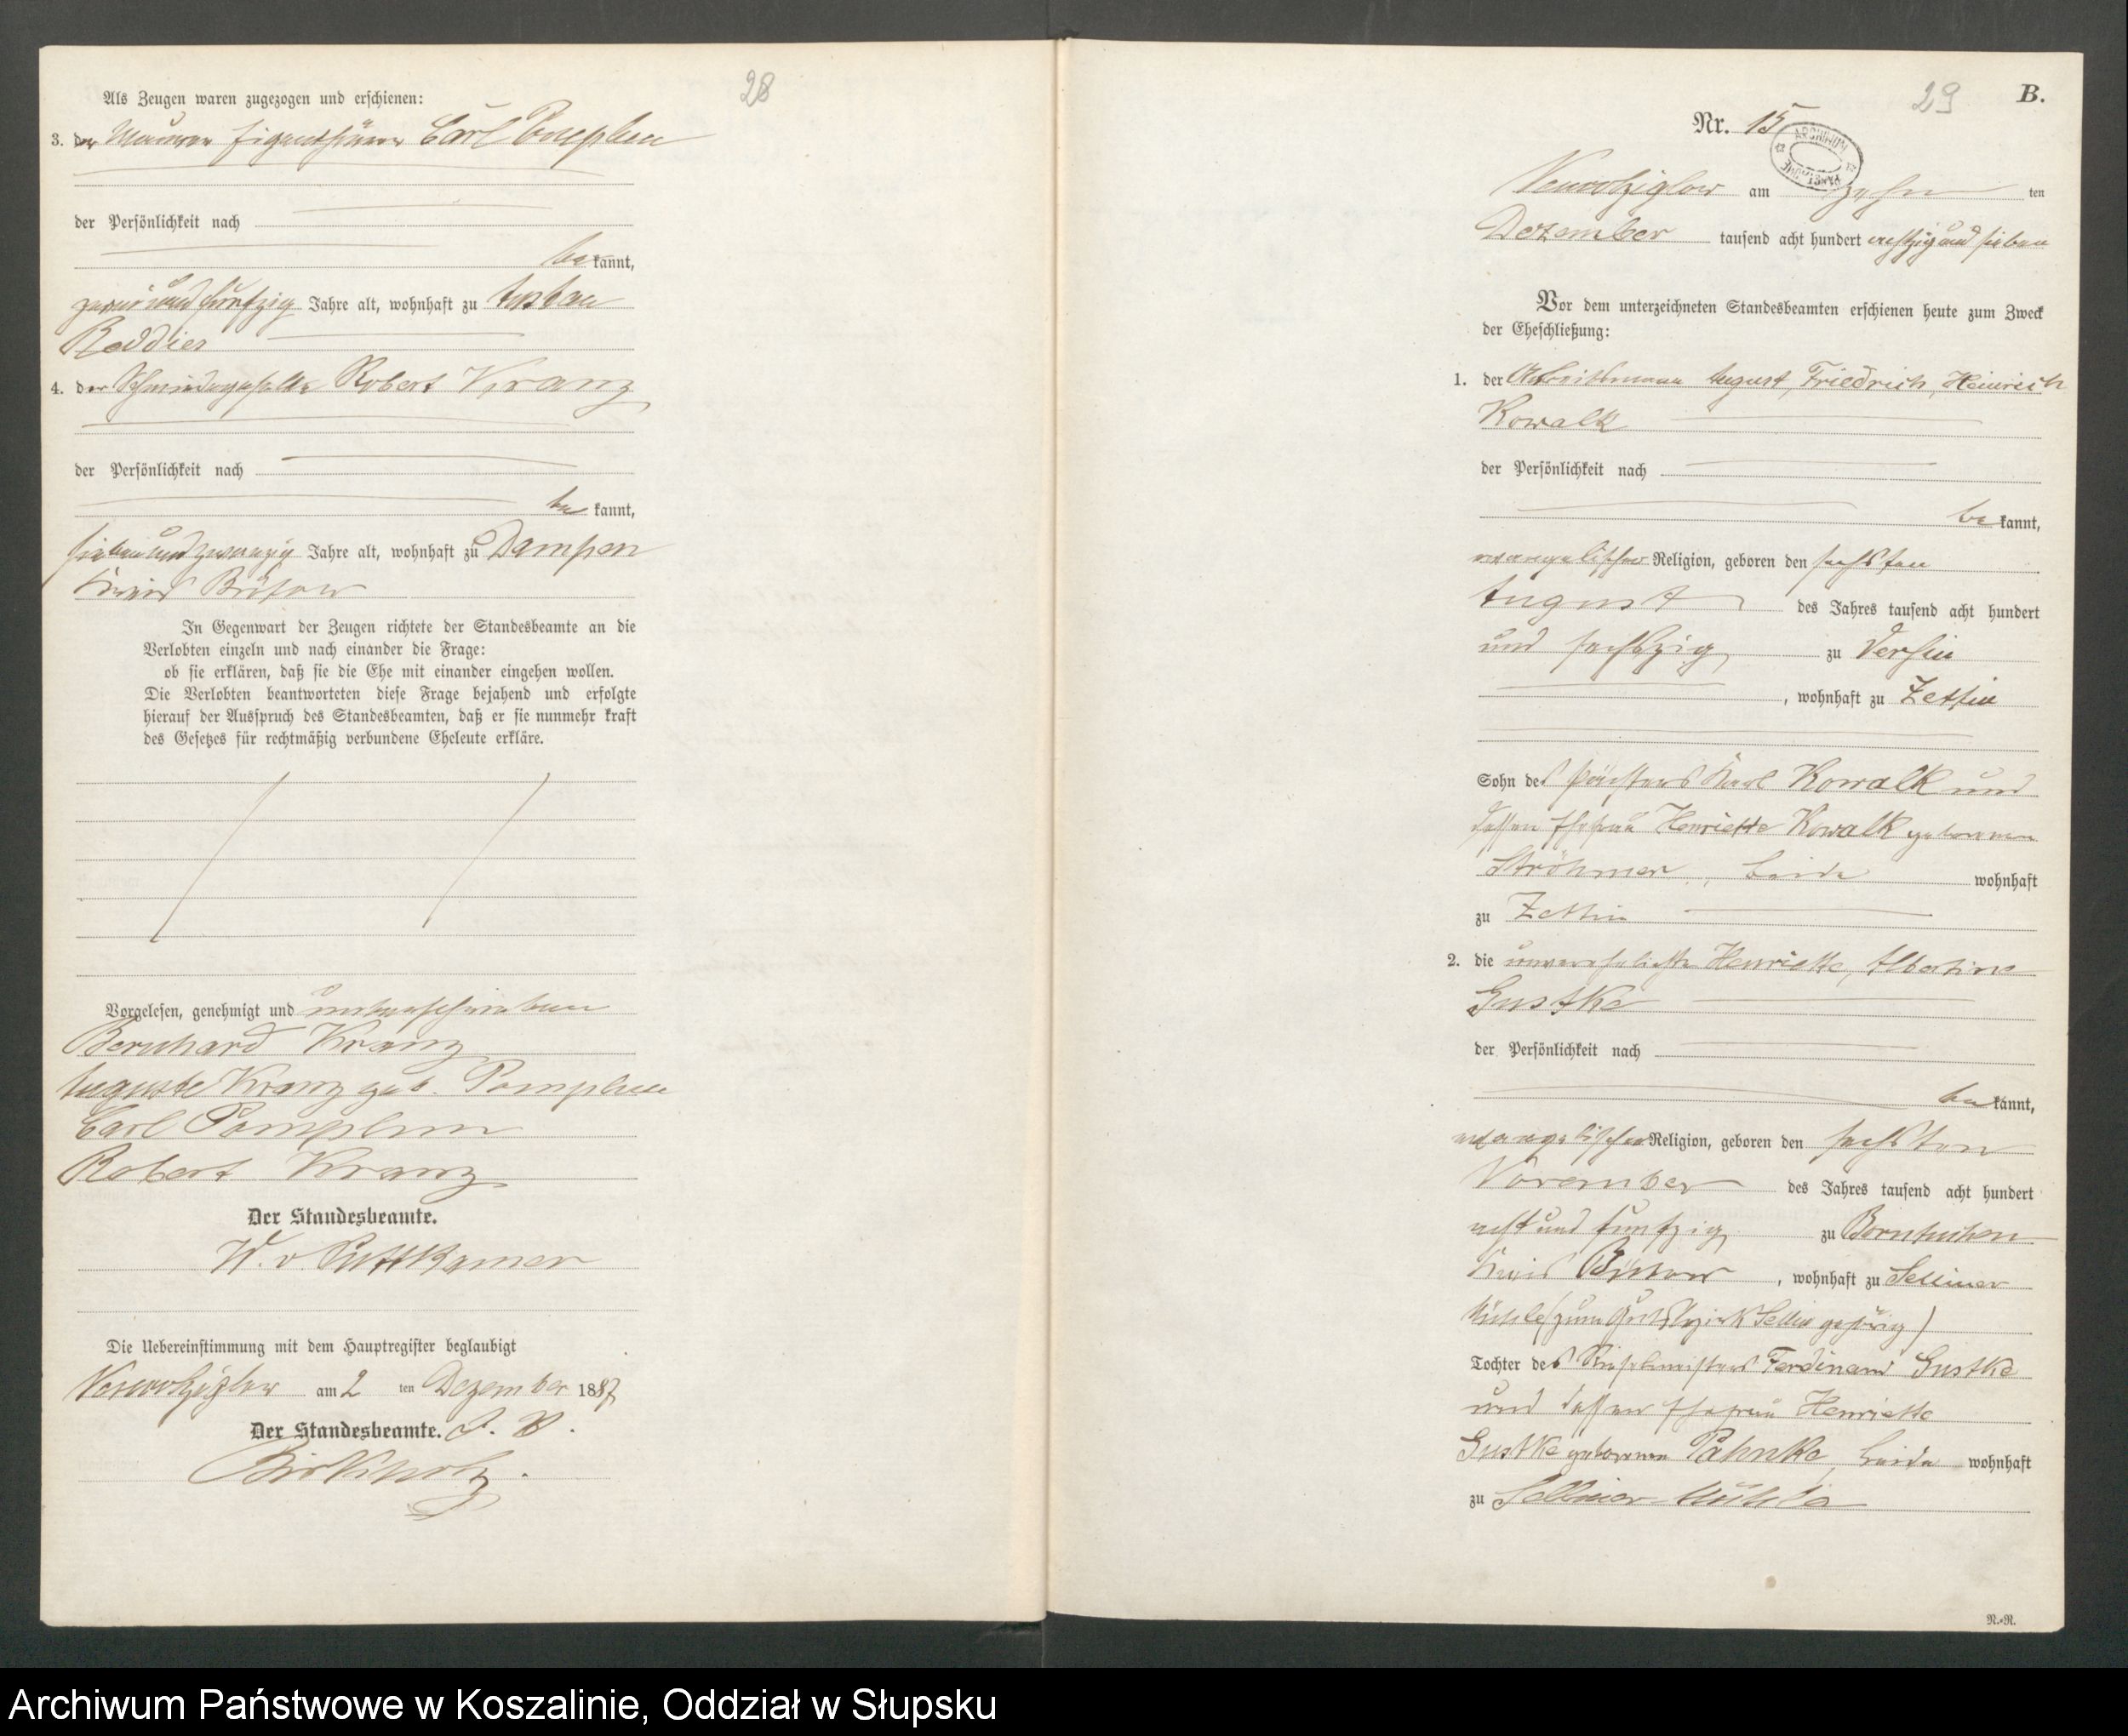 28
Als Zeugen waren zugezogen und erschienen:
3. der Maurer Eigenthümer Carl Pomplun
der Persönlichkeit nach
bekannt,
zwei und funfzig Jahre alt, wohnhaft zu
Reddies
4. der Schmiedegeselle Robert Kranz
der Persönlichkeit nach
be kannt,
sieben und zwanzig Jahre alt, wohnhaft zu Dampen
Kreis Bütow
In Gegenwart der Zeugen richtete der Standesbeamte an die
Verlobten einzeln und nach einander die Frage:
ob sie erklären, daß sie die Ehe mit einander eingehen wollen.
Die Verlobten beantworteten diese Frage bejahend und erfolgte
hierauf der Ausspruch des Standesbeamten, daß er sie nunmehr kraft
des Gesetzes für rechtmäßig verbundene Eheleute erkläre.
Vorgelesen, genehmigt und unterschrieben
Bernhard Kranz
Auguste Kranz geb. Pomplun
Carl Pomplun
Robert Kranz
Der Standesbeamte.
W. v Puttkamer
Die Uebereinstimmung mit dem Hauptregister beglaubigt
Neuwolziglow am 2 ten Dezember 1887
Der Standesbeamte. I. V.
Birkholz.
29
B.
Nr. 15
ARCHIWUM
Neuwolziglow am zehn ten
Dezember tausend acht hundert achtzig und sieben
Vor dem unterzeichneten Standesbeamten erschienen heute zum Zweck
der Eheschließung:
1. der Arbeitsmann August, Friedrich, Heinrich
Kowalk
der Persönlichkeit nach
be kannt,
evangelischer Religion, geboren den sechsten
August des Jahres tausend acht hundert
und sechszig zu Versin
, wohnhaft zu Zettin
Sohn des Pächters Karl Kowalk und
dessen Ehefrau Henriette Kowalk geborenen
Ströhmer, beide wohnhaft
zu Zettin
2. die unverehelichte Henriette, Albertine
Gustke
der Persönlichkeit nach
be kannt,
evangelischer Religion, geboren den sechsten
November des Jahres tausend acht hundert
acht und funfzig zu Borntuchen
Kreis Bütow, wohnhaft zu Selliner
Mühle (zum Gutsbezirk Sellin gehörig)
Tochter des Ferdinand Gustke
und dessen Ehefrau Henriette
Gustke geborenen Pahnke, beide wohnhaft
zu Selliner Mühle
N.-N.
Archiwum Państwowe w Koszalinie, Oddział w Słupsku